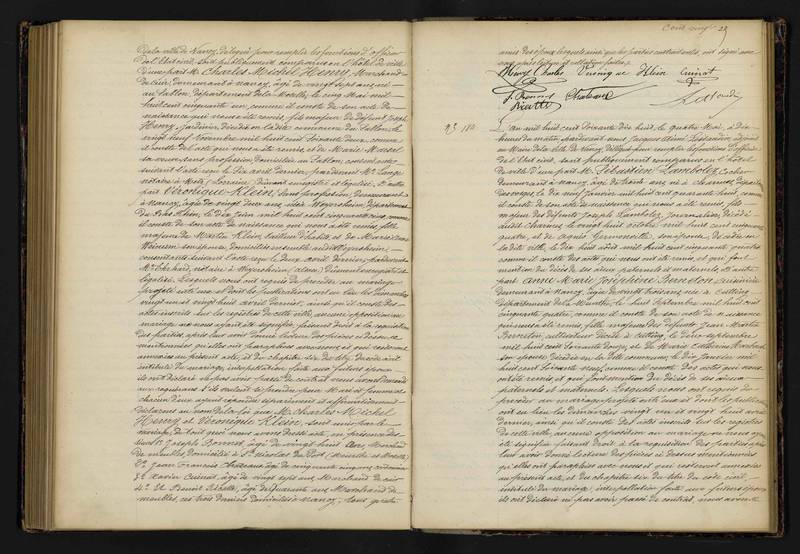 De la ville de Nancy, délégué pour remplir les fonctions d'officier
de l'état civil, sont publiquement comparus en l'hôtel de ville
d'une part M. Charles Michel Henry, Marchand
de cuir, demeurant à Nancy, âgé de vingt sept ans, né
au Sablon, département de la Moselle, le cinq Mai mil
huit cent cinquante un, comme il conste de son acte de
naissance qui nous a été remis, fils majeur de défunt Joseph
Henry, jardinier, décédé en ladite commune du Sablon, le
vingt neuf mil huit cent soixante deux, comme
il conste de l'acte qui nous a été remis, et de Marie
sa veuve sans profession, domiciliée au Sablon, consentante
suivant l'acte reçu le dix avril dernier, par devant Me Lange
notaire à Metz, Lorraine, dûment enregistré et légalisé. D'autre
part Véronique Klein, sans profession, demeurant
à Nancy, âgée de vingt deux ans, née à Weyersheim, département
du Bas Rhin, le dix Juin mil huit cent cinquante cinq, comme
il conste de son acte de naissance qui nous a été remis, fille
majeure de Martin Klein, et de Marie
son épouse, domiciliés ensemble audit Weyersheim,
consentants suivant l'acte reçu le deux avril dernier par devant
Me notaire à Weyersheim, dûment enregistré et
légalisé. Lesquels nous ont requis de procéder au mariage
projeté entr'eux et dont les publications ont eu lieu les dimanches
vingt un et vingt huit avril dernier, ainsi qu'il conste des
actes inscrits sur les registres de cette ville, aucune opposition au
mariage ne nous ayant été signifiée, faisant droit à la réquisition
des parties, après leur avoir donné lecture des pièces ci dessus
mentionnées qu'elles ont paraphées avec nous et qui resteront
annexées au présent acte, et du chapitre six du titre du code civil
intitulé du mariage, interpellation faite aux futurs époux
ils ont déclaré ne pas avoir passé de contrat, nous avons demandé
aux requérants s'ils veulent se prendre pour Mari et femme et
chacun d'eux ayant répondu séparément et affirmativement
déclarons au nom de la loi que M. Charles Michel
Henry et Véronique Klein, sont unis par le
mariage, de tout quoi nous avons dressé acte, en présence des
sieurs 1° Joseph Bonnet, âgé de vingt huit ans, Marchand
de meubles, domicilié à St Nicolas du Port (Meurthe et Moselle)
2° Jean François Chateaux, âgé de cinquante cinq ans,
3° Xavier Cuinat, âgé de vingt sept ans, Marchand de cuir
4° et Benoit âgé de quarante ans, Marchand de
meubles, ces trois derniers domiciliés à Nancy; tous quatre
Cent cinq 25
amis des époux lesquels ainsi que les parties contractantes, ont signé avec
nous après lecture et collation faites.
Henry Charles Véronique Klein Cuinat
J. Bonnet Chateaux
L'an mil huit cent soixante dix huit, le quatre Mai, à dix
heures du matin, par devant nous Jacques adjoint
au Maire de la ville de Nancy, délégué pour remplir les fonctions d'officier
de l'état civil, sont publiquement comparus en l'hôtel
de ville d'une part M. Sébastien Lambolez, Cocher
demeurant à Nancy, âgé de trente ans, né à Charmes, département
des Vosges, le dix neuf mil huit cent quarante huit, comme
il conste de son acte de naissance qui nous a été remis, fils
majeur des défunts Joseph Lambolez, journalier, décédé
audit Charmes, le vingt huit octobre mil huit cent cinquante
quatre, et de son épouse, décédée en
ladite ville, le dix huit août mil huit cent cinquante quatre
comme il conste des actes qui nous ont été remis, et qui font
mention du décès de ses aïeux paternels et maternels. D'autre
part Anne Marie Joséphine Berveiller, cuisinière
demeurant à Nancy, âgée de vingt trois ans, née à Cutting
département de la Meurthe, le huit septembre mil huit cent
cinquante quatre, comme il conste de son acte de naissance
qui nous a été remis, fille majeure des défunts Jean Martin
cultivateur décédé à Cutting, le cinq septembre
mil huit cent soixante douze, et de Marie Catherine
son épouse, décédée en la dite commune, le dix janvier mil
huit cent soixante neuf, comme il conste des actes qui nous
ont été remis et qui font mention du décès de ses aïeux
paternels et maternels. Lesquels nous ont requis de
procéder au mariage projeté entr'eux et dont les publications
ont eu lieu les dimanches vingt un et vingt huit avril
dernier, ainsi qu'il conste des actes inscrits sur les registres
de cette ville, aucune opposition au mariage ne nous ayant
été signifiée, faisant droit à la réquisition des parties après
leur avoir donné lecture des pièces ci dessus mentionnées
qu'elles ont paraphées avec nous et qui resteront annexées
au présent acte, et du chapitre six du titre du code civil,
intitulé du mariage, interpellation faite aux futurs époux
ils ont déclaré ne pas avoir passé de contrat, nous avons